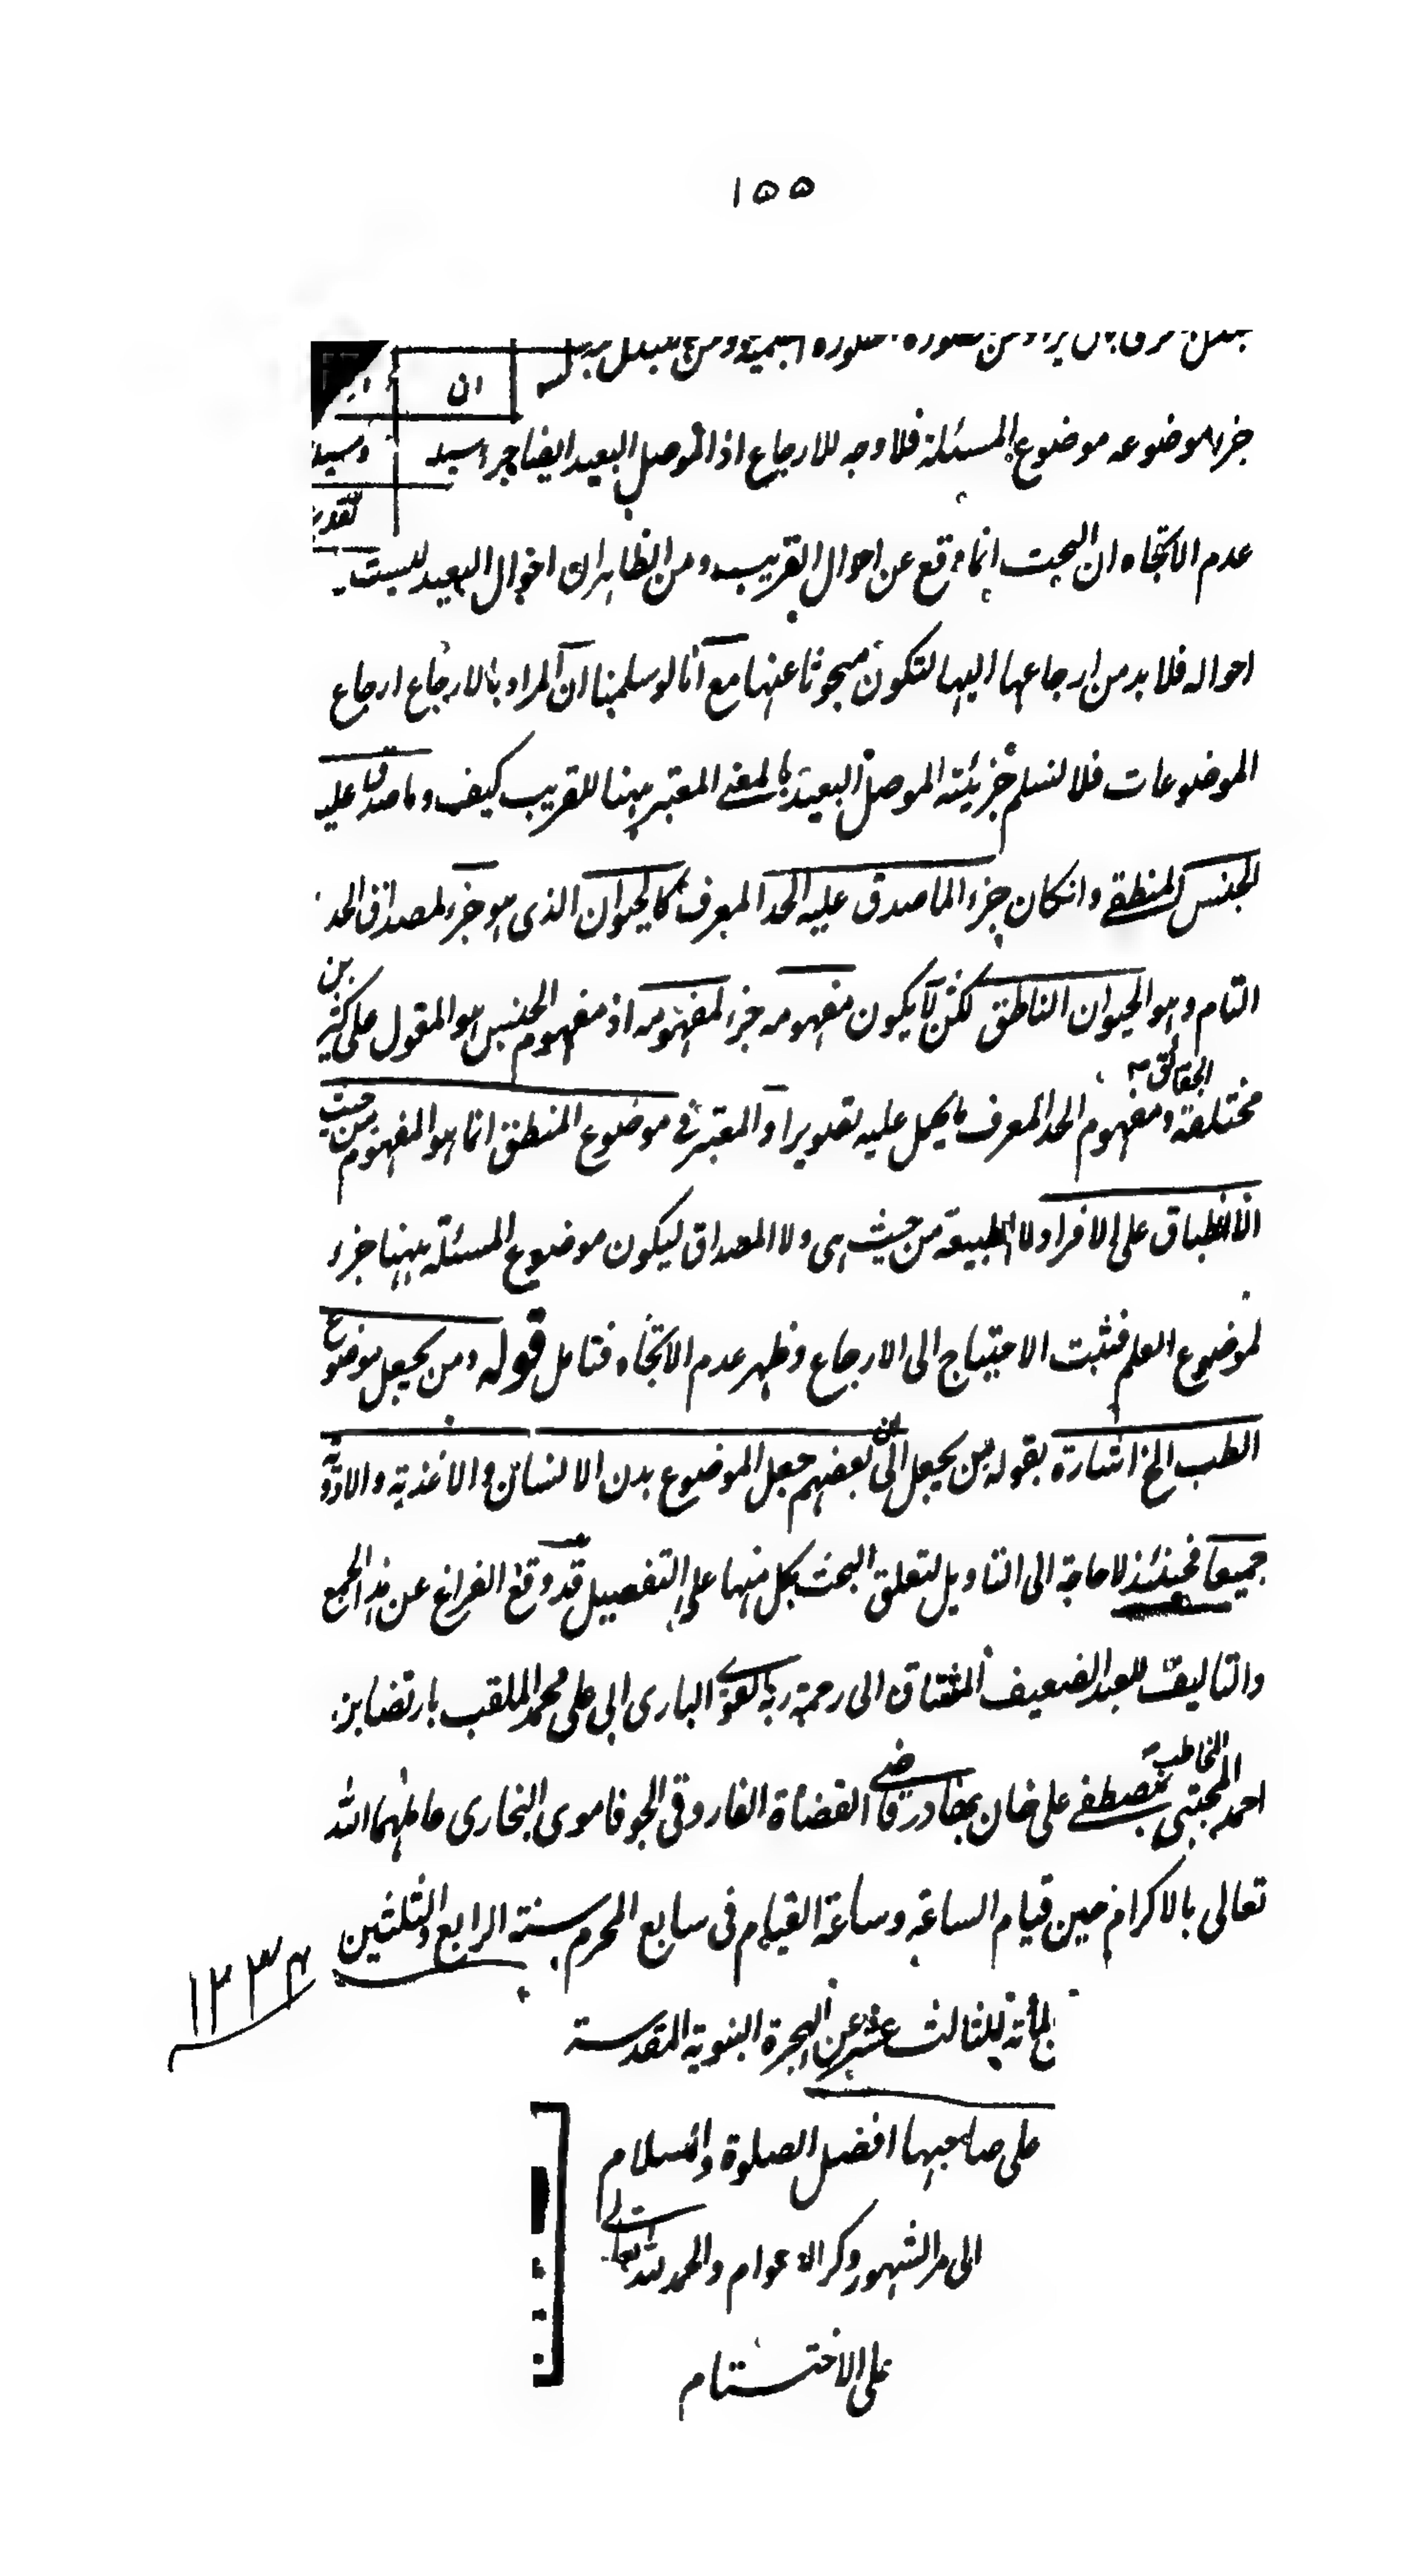 ١٥٥
ان
جزء موضوعه موضوع المسئلة فلا وجه للارجاع اذ الموصل البعيد ايضا جزء
عدم الاتجاه ان البحث انما وقع عن احوال القريب ومن الظاهر ان احوال البعيد ليست
احواله فلا بد من ارجاعها اليها لتكون مبحوثا عنها مع انا لو سلمنا ان المراد بالارجاع ارجاع
الموضوعات فلا نسلم جزئية الموصل البعيد بالمعنى المعتبر ههنا للقريب كيف وما صدق عليه
الجنس المنطقى وانكان جزء الما صدق عليه الحد المعرف كالحيوان الذى هو جزء لمصداق الحد
التام وهو الحيوان الناطق لكن لا يكون مفهومه جزء لمفهومه اذ مفهوم الجنس هو المقول على كثيرين
مختلفة الحقائق ومفهوم الحد المعرف ما يحمل عليه تصويرا والمعتبر فى موضوع المنطق انما هو المفهوم من حيث
الانطباق على الافراد لا الطبيعة من حيث هى ولا المصداق ليكون موضوع المسئلة ههنا جزء
لموضوع العلم فثبت الاحتياج الى الارجاع وظهر عدم الاتجاه فتامل قوله ومن يجعل موضوع
الطب الخ اشارة بقوله من يجعل الى ان بعضهم جعل الموضوع بدن الانسان والاغذية والادوية
جميعا فحينئذ لا حاجة الى التاويل لتعلق البحث بكل منها على التفصيل قد وقع الفراغ عن هذا الجمع
والتاليف للعبد الضعيف المشتاق الى رحمة ربه القوى البارى ابى على محمد الملقب بارتضا بن
احمد المجتبى المخاطب بمصطفى على خان بهادر قاضى القضاة الفاروقى الجوفاموى البخارى عاملهما الله
تعالى بالاكرام حين قيام الساعة وساعة القيام فى سابع المحرم سنة الرابع والثلثين
١٢٣٤
المأته الثالث عشر عن الهجرة النبوية المقدسة
على صاحبها افضل الصلوة والسلام
الى مر الشهور وكر الاعوام والحمد لله تعالى
على الاختتام